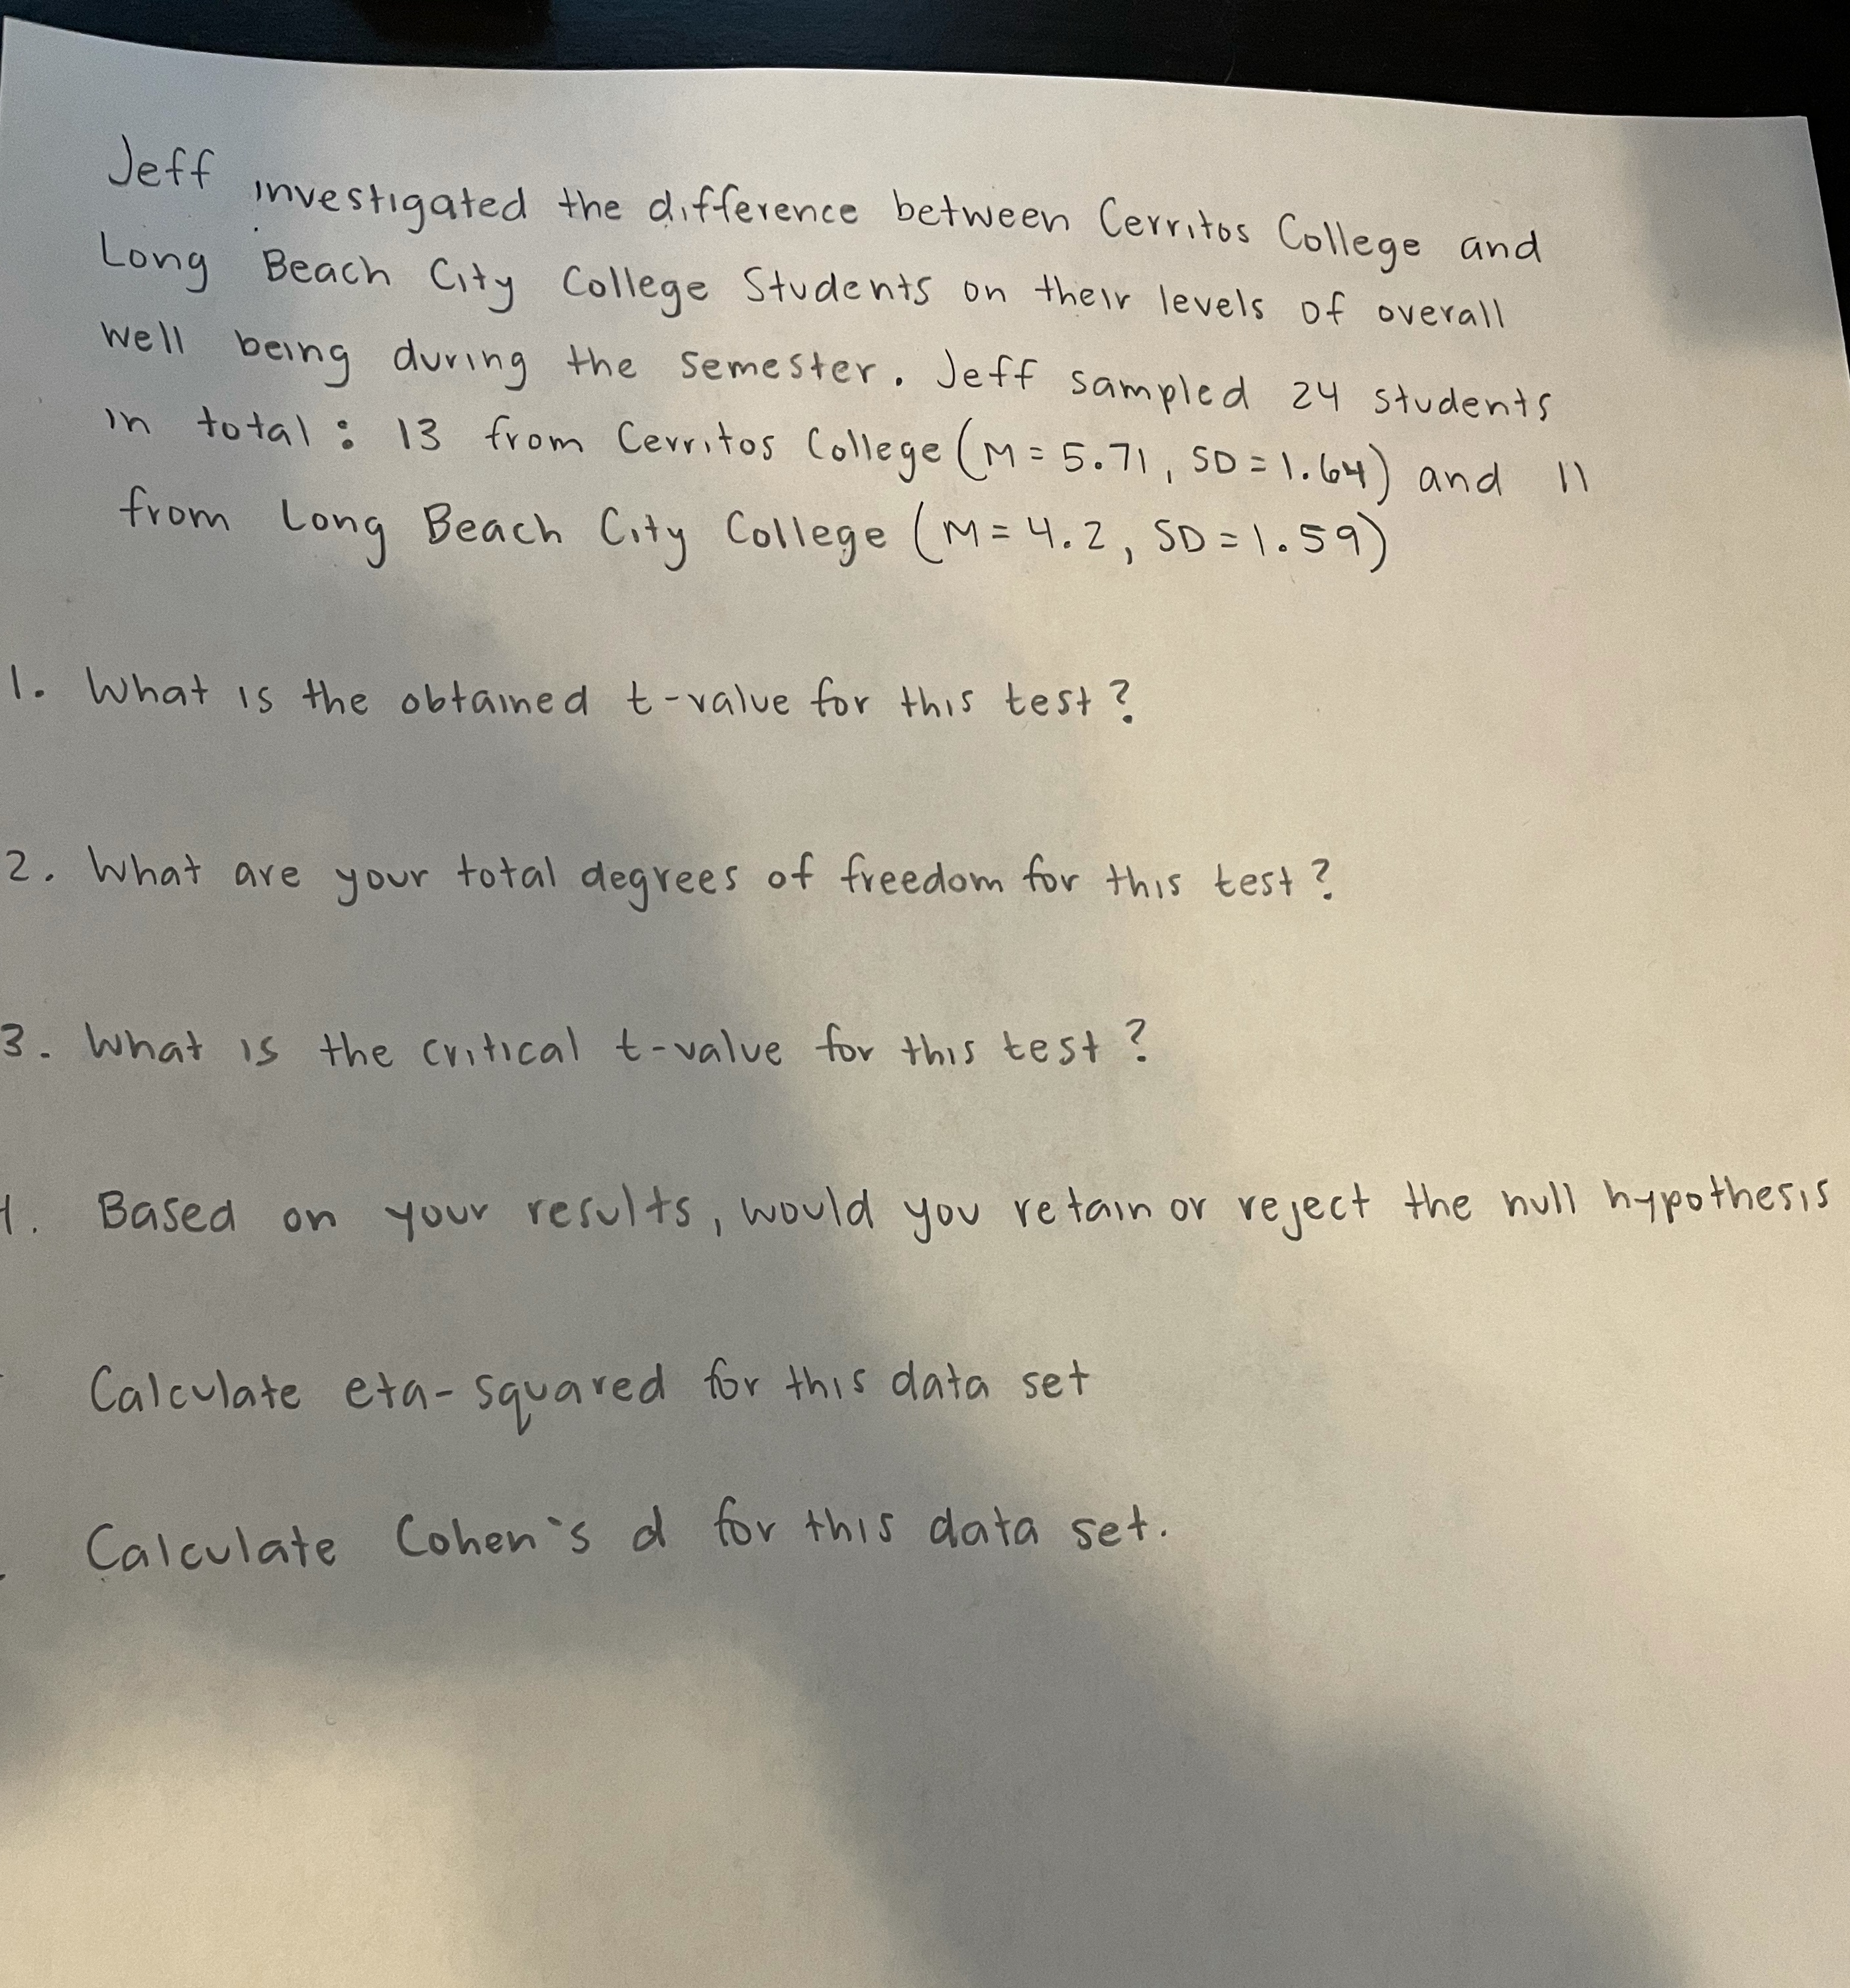 Jeff investigated the difference between Cerritos College and
Long Beach City College Students on their levels of overall
well being during the semester. Jeff sampled 24 students
in total: 13 from Cerritos College (M=5.71, SD=1.64) and 11
from Long Beach City College (M=4.2, SD=1.59)
1. What is the obtained t-value for this test?
2. What are your total degrees of freedom for this test?
3. What is the critical t-value for this test?
. Based on your results, would you retain or reject the null hypothesis
Calculate eta-squared for this data set
Calculate Cohen's d for this data set.